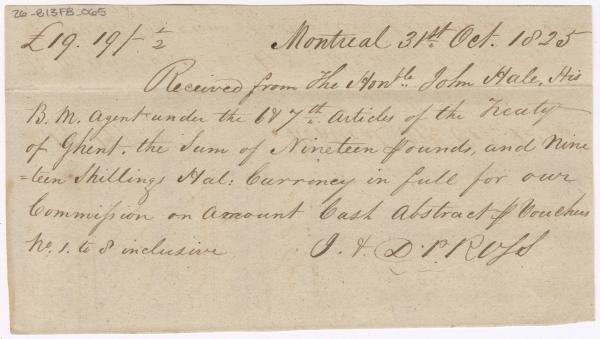 26-B13FB_065
£19. 19/- ½ Montreal 31st. Oct. 1825
Received from The Honble. John Hale, His
B. M. Agent under the 6 & 7th. Articles of the Treaty
of Ghent. the Sum of Nineteen Pounds, and Nine
=teen Shillings Hal: Currency in full for our
Commission on Amount Cash Abstract & Vouchers
No. 1. to 8 inclusive J. & D. P. Ross